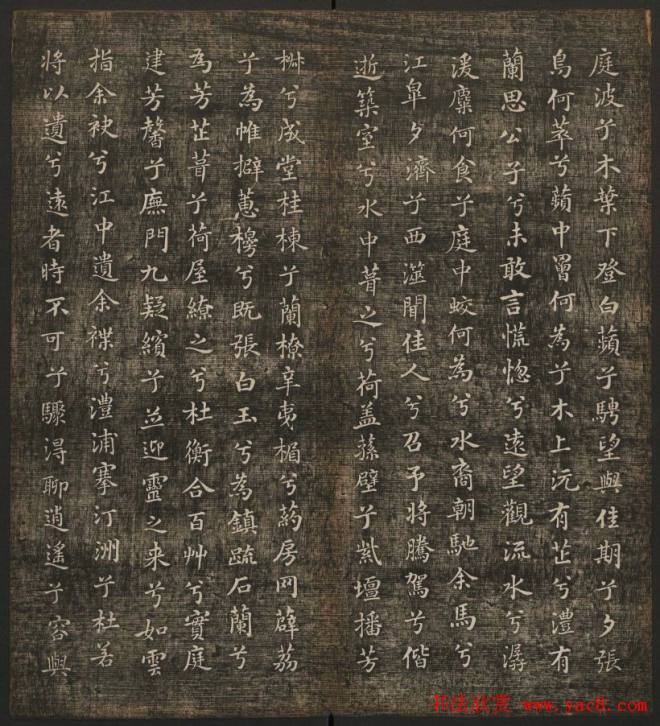 庭波兮木葉下登白蘋兮騁望與佳期兮夕張
鳥何萃兮蘋中罾何為兮木上沅有芷兮澧有
蘭思公子兮未敢言慌惚兮遠望觀流水兮潺
湲麋何食兮庭中蛟何為兮水裔朝馳余馬兮
江皋夕濟兮西澨聞佳人兮召予將騰駕兮偕
逝築室兮水中葺之兮荷盖蓀壁兮紫壇播芳
椒兮成堂桂棟兮蘭橑辛夷楣兮葯房网薜荔
兮為帷擗蕙櫋兮既張白玉兮為鎮疏石蘭兮
為芳芷葺兮荷屋繚之兮杜衡合百艸兮實庭
建芳馨兮廡門九疑繽兮並迎靈之来兮如雲
指余袂兮江中遺余褋兮澧浦搴汀洲兮杜若
將以遺兮遠者時不可兮驟得聊逍遥兮容與
书法欣赏 www.yac8.com